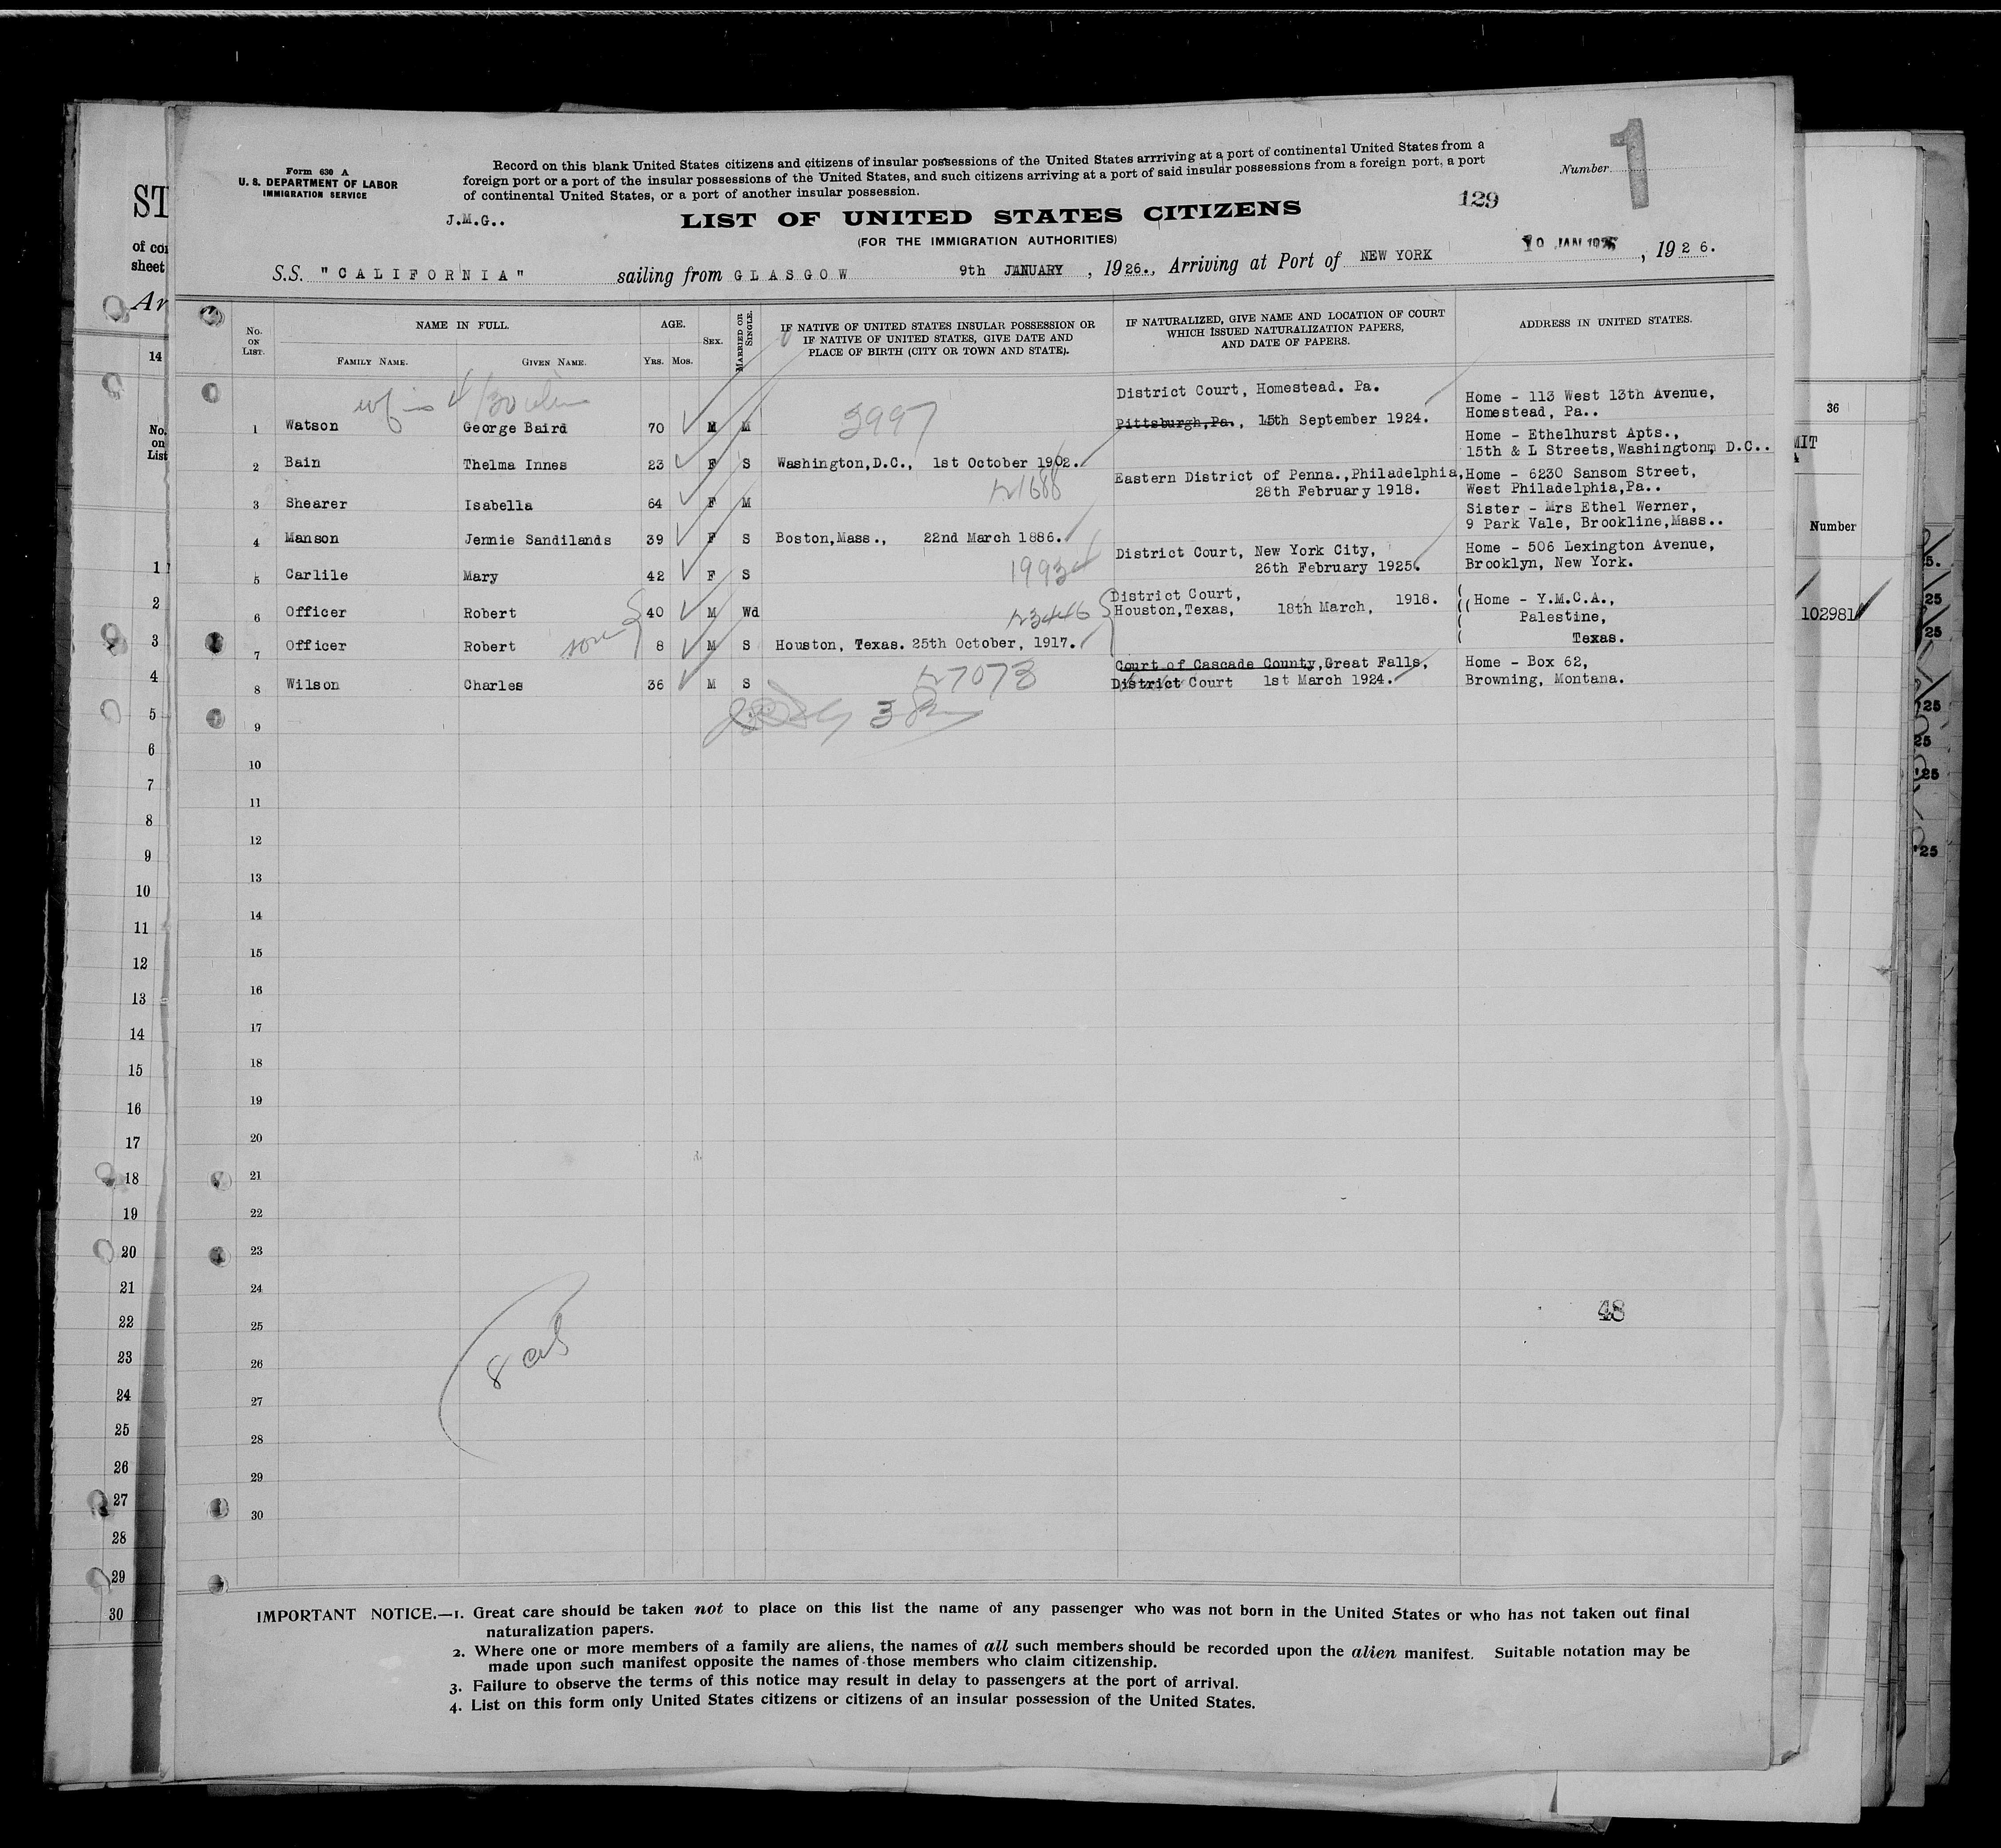 Form 630 A
U. S. DEPARTMENT OF LABOR
IMMIGRATION SERVICE
Record on this blank United States citizens and citizens of insular possessions of the United States arrriving at a port of continental United States from a
foreign port or a port of the insular possessions of the United States, and such citizens arriving at a port of said insular possessions from a foreign port, a port
of continental United States, or a port of another insular possession.
Number 1
129
J.M.G..
LIST OF UNITED STATES CITIZENS
(FOR THE IMMIGRATION AUTHORITIES)
S.S. "CALIFORNIA" sailing from GLASGOW 9th JANUARY, 1926., Arriving at Port of NEW YORK JAN 1926, 1926.
No. ON LIST.
NAME IN FULL.
FAMILY NAME. GIVEN NAME.
AGE.
YRS. MOS.
SEX.
MARRIED OR SINGLE.
IF NATIVE OF UNITED STATES INSULAR POSSESSION OR
IF NATIVE OF UNITED STATES, GIVE DATE AND
PLACE OF BIRTH (CITY OR TOWN AND STATE).
IF NATURALIZED, GIVE NAME AND LOCATION OF COURT
WHICH ISSUED NATURALIZATION PAPERS,
AND DATE OF PAPERS.
ADDRESS IN UNITED STATES.
District Court, Homestead. Pa.
Home - 113 West 13th Avenue,
Homestead, Pa..
1 Watson George Baird 70 M M 3997 Pittsburgh,Pa., 15th September 1924.
Home - Ethelhurst Apts.,
15th & L Streets,Washington, D.C..
2 Bain Thelma Innes 23 F S Washington,D.C., 1st October 1902.
Eastern District of Penna.,Philadelphia, Home - 6230 Sansom Street,
28th February 1918. West Philadelphia,Pa..
3 Shearer Isabella 64 F M
Sister - Mrs Ethel Werner,
9 Park Vale, Brookline,Mass..
4 Manson Jennie Sandilands 39 F S Boston,Mass., 22nd March 1886.
District Court, New York City, Home - 506 Lexington Avenue,
26th February 1925. Brooklyn, New York.
5 Carlile Mary 42 F S
District Court,
Houston,Texas, 18th March, 1918. Home - Y.M.C.A.,
6 Officer Robert 40 M Wd
Palestine,
Texas.
7 Officer Robert son 8 M S Houston, Texas. 25th October, 1917.
Court of Cascade County,Great Falls, Home - Box 62,
8 Wilson Charles 36 M S District Court 1st March 1924. Browning, Montana.
9
10
11
12
13
14
15
16
17
18
19
20
21
22
23
24
25
26
27
28
29
30
48
IMPORTANT NOTICE.—1. Great care should be taken not to place on this list the name of any passenger who was not born in the United States or who has not taken out final
naturalization papers.
2. Where one or more members of a family are aliens, the names of all such members should be recorded upon the alien manifest. Suitable notation may be
made upon such manifest opposite the names of those members who claim citizenship.
3. Failure to observe the terms of this notice may result in delay to passengers at the port of arrival.
4. List on this form only United States citizens or citizens of an insular possession of the United States.
ST
of
sheet
Ar
14
No.
on
List
1
2
3
4
5
6
7
8
9
10
11
12
13
14
15
16
17
18
19
20
21
22
23
24
25
26
27
28
29
30
36
MIT
Number
102981